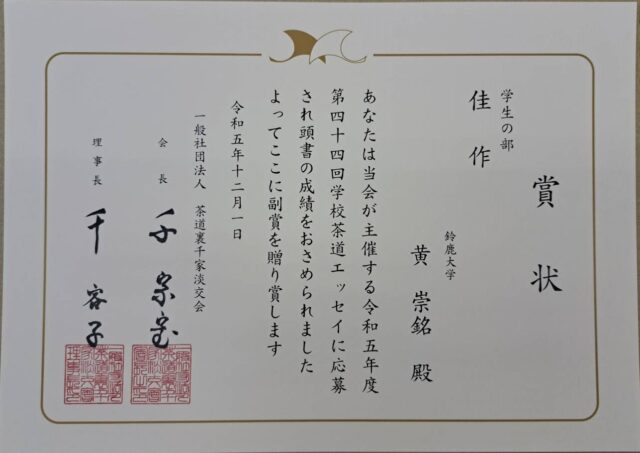 賞状
学生の部
佳作
鈴鹿大学
黄崇銘 殿
あなたは当会が主催する令和五年度
第四十四回学校茶道エッセイに応募
され頭書の成績をおさめられました
よってここに副賞を贈り賞します
令和五年十二月一日
一般社団法人 茶道裏千家淡交会
会長 千 宗室
理事長 千 容子